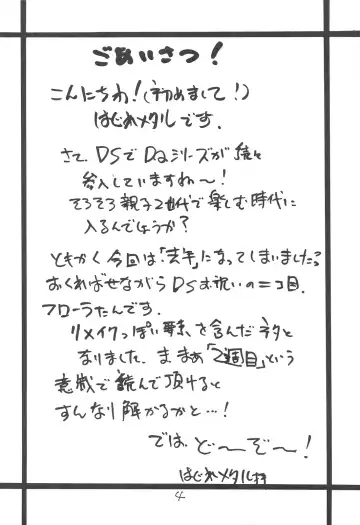 ごあいさつ!
こんにちわ!(初めまして!)
はじめメタルです。
さて、DSでDQシリーズが続々
参入していますね～!
そろそろ親子2世代で楽しむ時代に
入るんでしょうか?
ともかく今回は「天空」になってしまいました?
おくればせながらDSお祝いの二つ目、
フローラたんです。
リメイクっぽい要素を含んだネタと
なりました。ま まぁ「2週目」という
意識で読んで頂けると
すんなり解かるかと…!
では ど～ぞ～!
はじめメタル
4